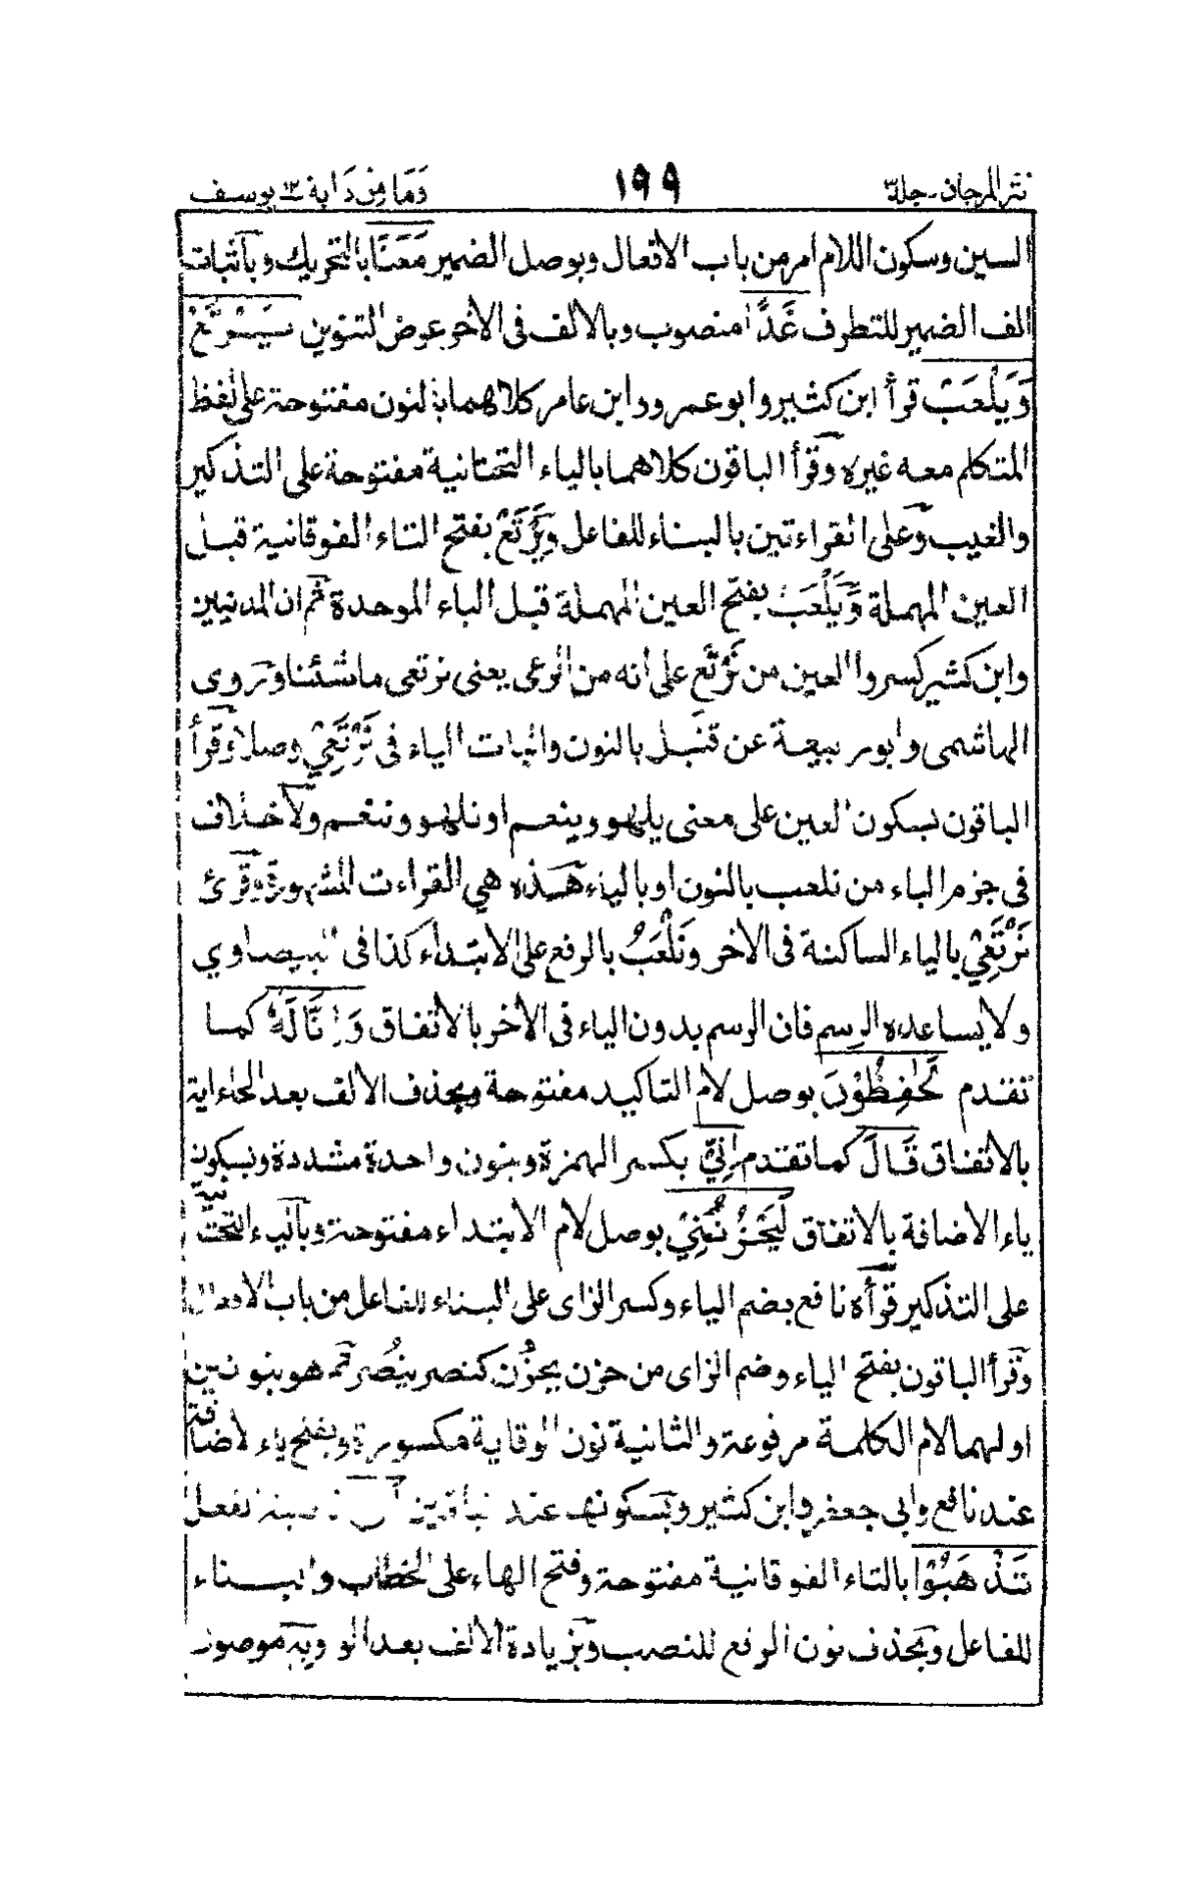 نثر المرجان - جلد ٣ ١٩٩ وَمَا مِنْ دَابة ١٢ يوسف
السين وسكون اللام امر من باب الافعال وبوصل الضمير مَعَنَا بالتحريك وباثبات
الف الضمير للتطرف غَدًا منصوب وبالالف فى الاخر عوض التنوين يَرْتَعْ
وَيَلْعَبْ قرأ ابن كثير وابو عمرو وابن عامر كلاهما بالنون مفتوحة على لفظ
المتكلم معه غيره وقرأ الباقون كلاهما بالياء التحتانية مفتوحة على التذكير
والغيب وعلى القراءتين بالبناء للفاعل ويَرْتَعْ بفتح التاء الفوقانية قبل
العين المهملة وَيَلْعَبْ بفتح العين المهملة قبل الباء الموحدة ثم ان المدنيين
وابن كثير كسروا العين من نَرْتَعِ على انه من الرعى يعنى نرتعى ماشئنا وتروى
الهاشمى وابو ربيعة عن قنبل بالنون واثبات الياء فى نَرْتَعِيْ وصلا وقرأ
الباقون بسكون العين على معنى يلهو وينعم او نلهو وننعم ولاخلاف
فى جزم الباء من نلعب بالنون او بالياء هذه هي القراءت المشهورة وقرئ
نَرْتَعِيْ بالياء الساكنة فى الاخر ونَلْعَبُ بالرفع على الابتداء كذا فى البيضاوي
ولايساعده الرسم فان الرسم بدون الياء فى الاخر بالاتفاق وَاِنَّا لَهٗ كما
تقدم لَحٰفِظُوْنَ بوصل لام التاكيد مفتوحة وبحذف الالف بعد الحاء اية
بالاتفاق قَالَ كما تقدم اِنِّيْ بكسر الهمزة وبنون واحدة مشددة وبسكون
ياء الاضافة بالاتفاق لَيَحْزُنُنِيْ بوصل لام الابتداء مفتوحة وبالياء التحتانية
على التذكير قرأه نافع بضم الياء وكسر الزاى على البناء للفاعل من باب الافعال
وقرأ الباقون بفتح الياء وضم الزاى من حزن يحزُن كنصر ينصُر ثم هو بنونين
اولهما لام الكلمة مرفوعة والثانية نون الوقاية مكسورة وبفتح ياء لاضافة
عند نافع وابي جعفر وابن كثير وبسكونها عند الباقين
تَذْهَبُوْا بالتاء الفوقانية مفتوحة وفتح الهاء على الخطاب والبناء
للفاعل وبحذف نون الرفع للنصب وبزيادة الالف بعد الواو بِهٖ موصول